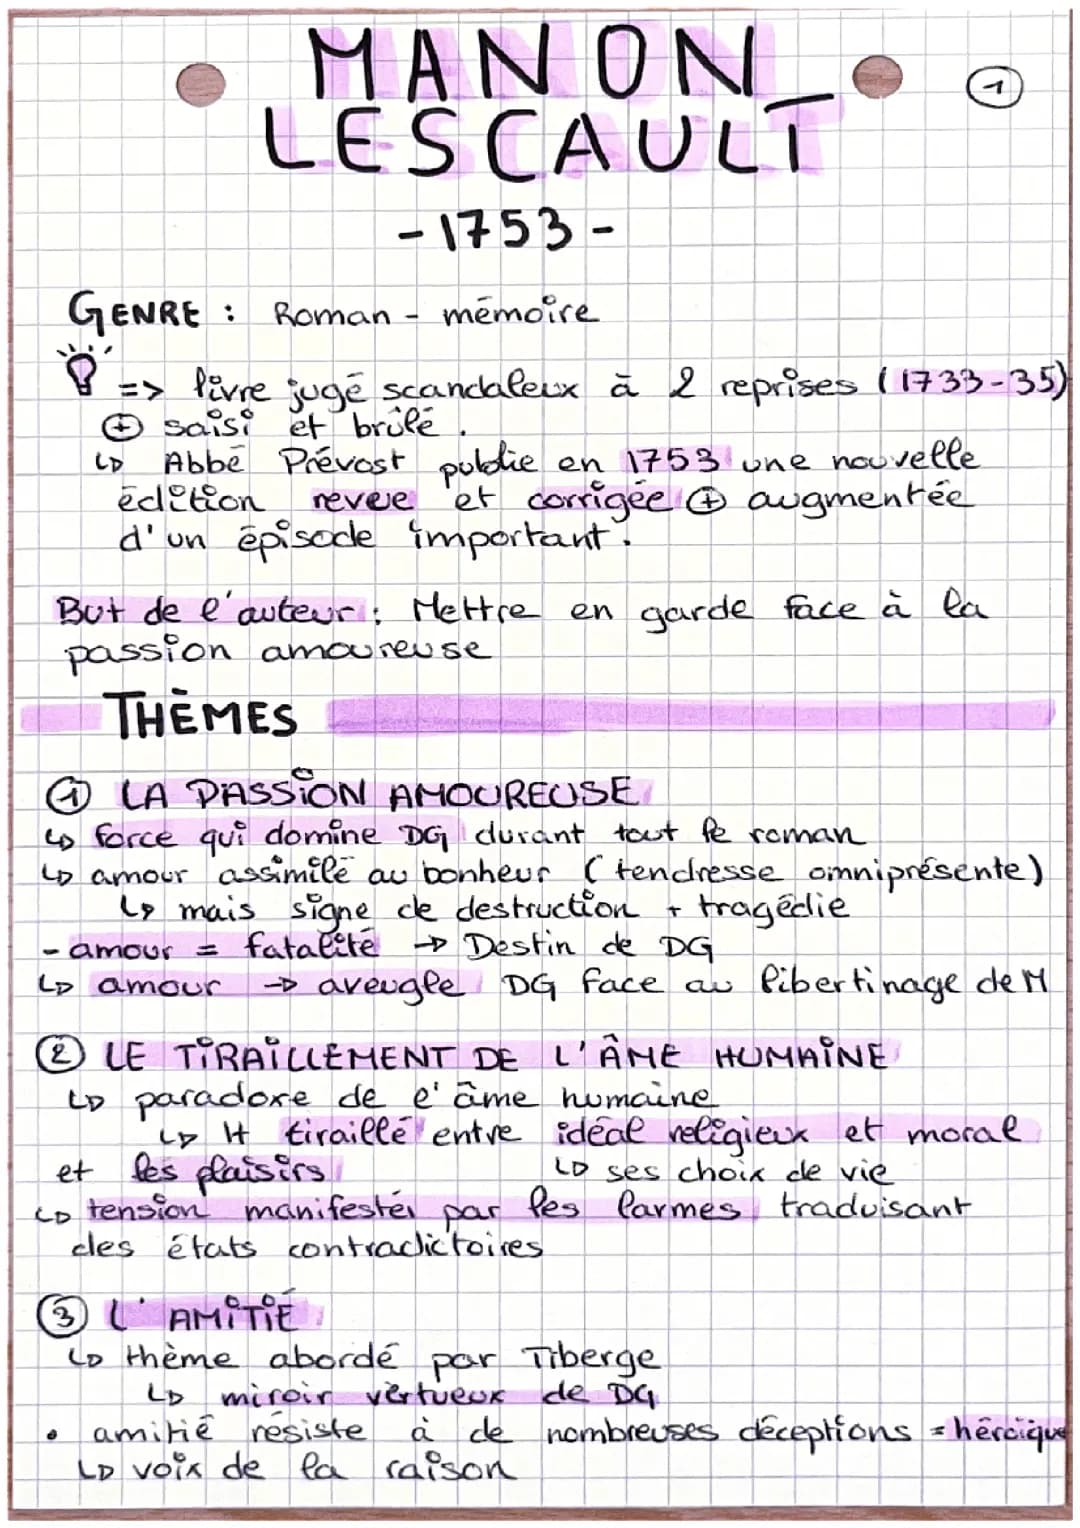 MANON
①
LESCAULT
- 1753 -
GENRE : Roman - mémoire
=> livre jugé scandaleux à 2 reprises (1733-35)
⊕ saisi et brûlé.
↳ Abbé Prévost publie en 1753 une nouvelle
édition revue et corrigée ⊕ augmentée
d'un épisode important.
But de l'auteur : Mettre en garde face à la
passion amoureuse
THÈMES
① LA PASSION AMOUREUSE
↳ force qui domine DG durant tout le roman
↳ amour assimilé au bonheur (tendresse omniprésente)
↳ mais signe de destruction + tragédie
- amour = fatalité → Destin de DG
↳ amour → aveugle DG face au libertinage de M
② LE TIRAILLEMENT DE L'ÂME HUMAINE
↳ paradoxe de l'âme humaine
↳ H tiraillé entre idéal religieux et moral
et les plaisirs ↳ ses choix de vie
↳ tension manifestér par les larmes traduisant
des états contradictoires
③ L'AMITIÉ
↳ thème abordé par Tiberge
↳ miroir vertueux de DG
• amitié résiste à de nombreuses déceptions = héroïque
↳ voix de la raison